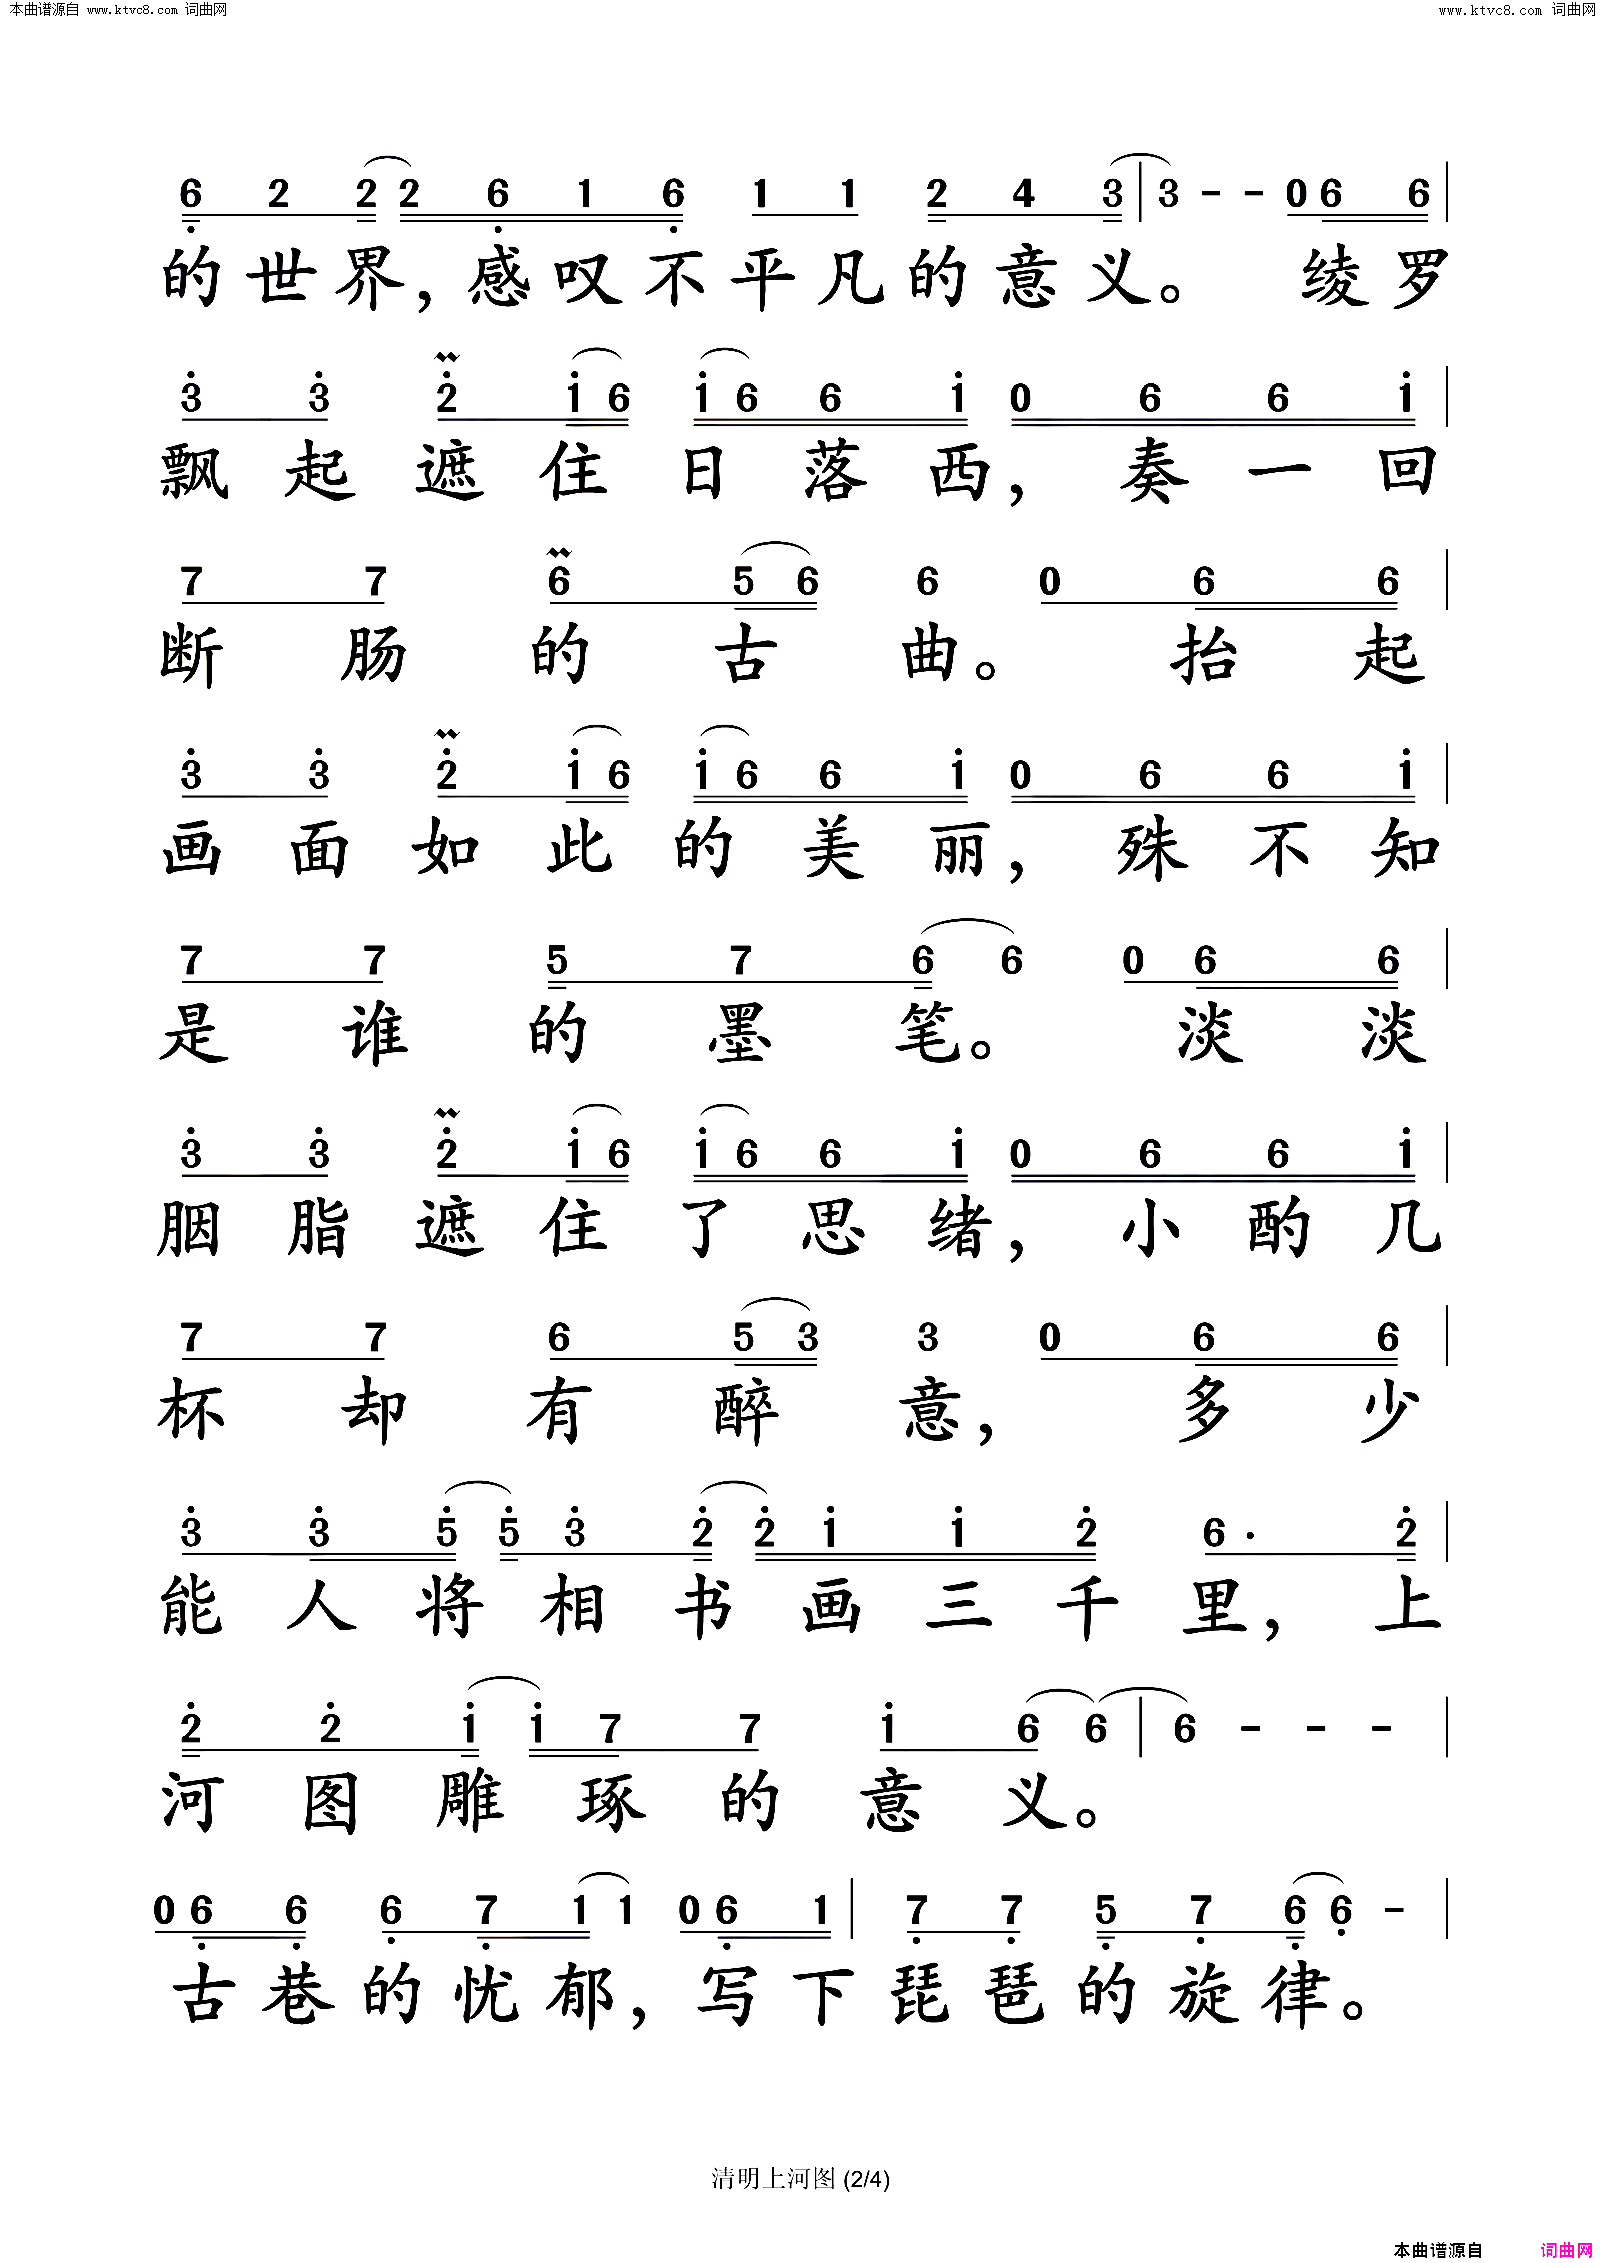 本曲谱源自 www.ktvc8.com 词曲网 www.ktvc8.com 词曲网
6 2 2 2 6 1 6 1 1 2 4 3 | 3 - - 0 6 6 |
的世界，感叹不平凡的意义。 绫罗
3 3 2 1 6 1 6 6 1 0 6 6 1 |
飘起遮住日落西，奏一回
7 7 6 5 6 6 0 6 6 |
断肠的古曲。 抬起
3 3 2 1 6 1 6 6 1 0 6 6 1 |
画面如此的美丽，殊不知
7 7 5 7 6 6 0 6 6 |
是谁的墨笔。 淡淡
3 3 2 1 6 1 6 6 1 0 6 6 1 |
胭脂遮住了思绪，小酌几
7 7 6 5 3 3 0 6 6 |
杯却有醉意， 多少
3 3 5 5 3 2 2 1 1 2 6· 2 |
能人将相书画三千里，上
2 2 1 1 7 7 1 6 6 | 6 - - - |
河图雕琢的意义。
0 6 6 6 7 1 1 0 6 1 | 7 7 5 7 6 6 - |
古巷的忧郁，写下琵琶的旋律。
清明上河图 (2/4)
本曲谱源自 词曲网